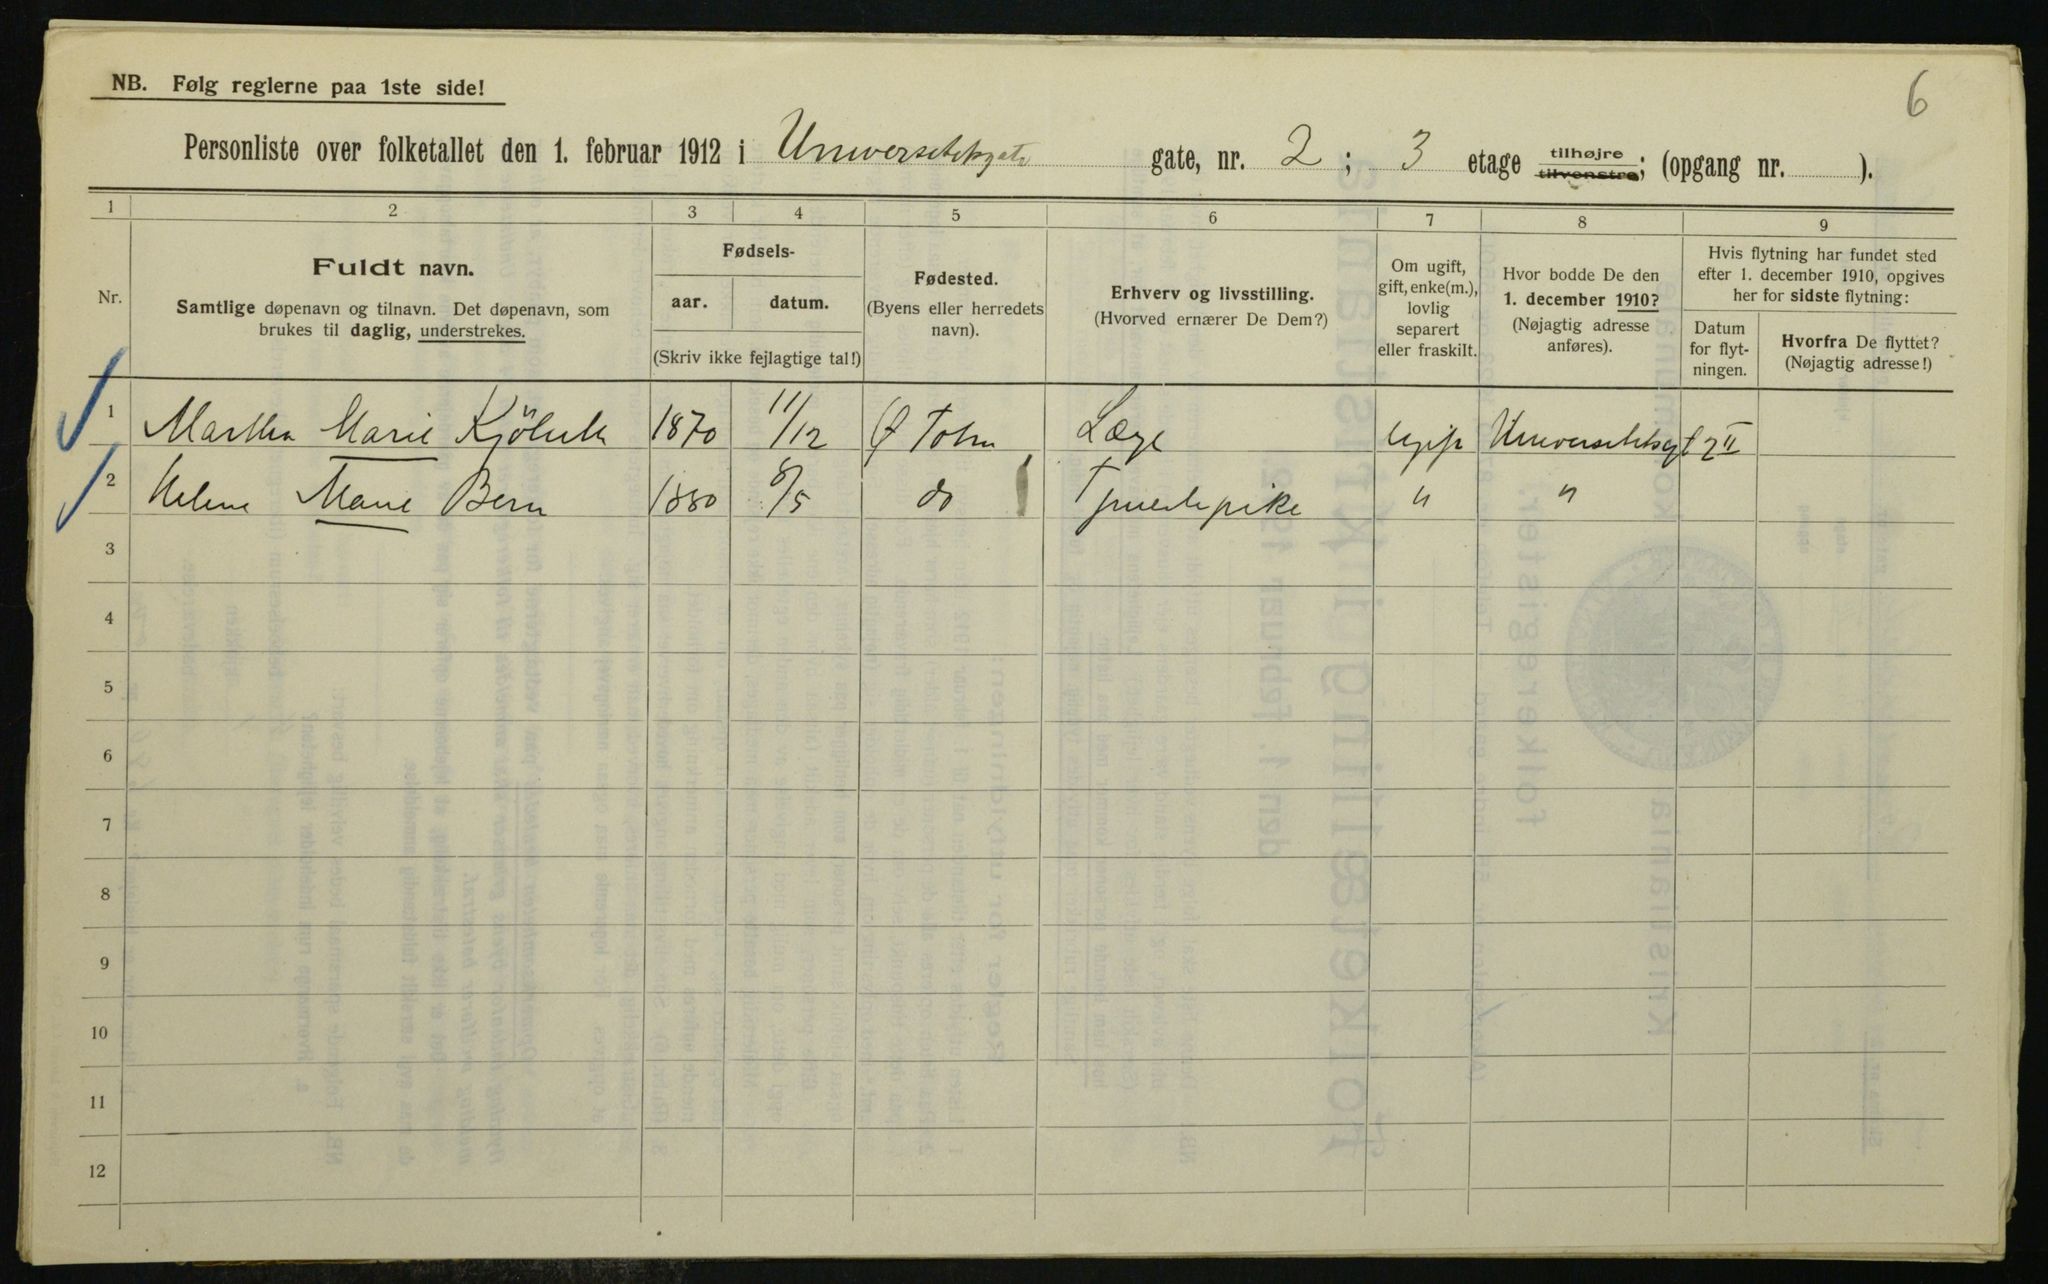 6
NB. Følg reglerne paa 1ste side!
Personliste over folketallet den 1. februar 1912 i Universitetsgate gate, nr. 2 ; 3 etage tilhøjre tilvenstre; (opgang nr. ).
1 2 3 4 5 6 7 8 9
Nr.
Fuldt navn.
Samtlige døpenavn og tilnavn. Det døpenavn, som
brukes til daglig, understrekes.
Fødsels-
aar. datum.
(Skriv ikke fejlagtige tal!)
Fødested.
(Byens eller herredets
navn).
Erhverv og livsstilling.
(Hvorved ernærer De Dem?)
Om ugift,
gift, enke(m.),
lovlig
separert
eller fraskilt.
Hvor bodde De den
1. december 1910?
(Nøjagtig adresse
anføres).
Hvis flytning har fundet sted
efter 1. december 1910, opgives
her for sidste flytning:
Datum
for flyt-
ningen.
Hvorfra De flyttet?
(Nøjagtig adresse!)
1 Martha Marie 1870 11/12 Ø Toten Læge ugift Universitetsgt 2 II
2 Helene Marie Bern 1880 6/5 do Tjenestepike " "
3
4
5
6
7
8
9
10
11
12